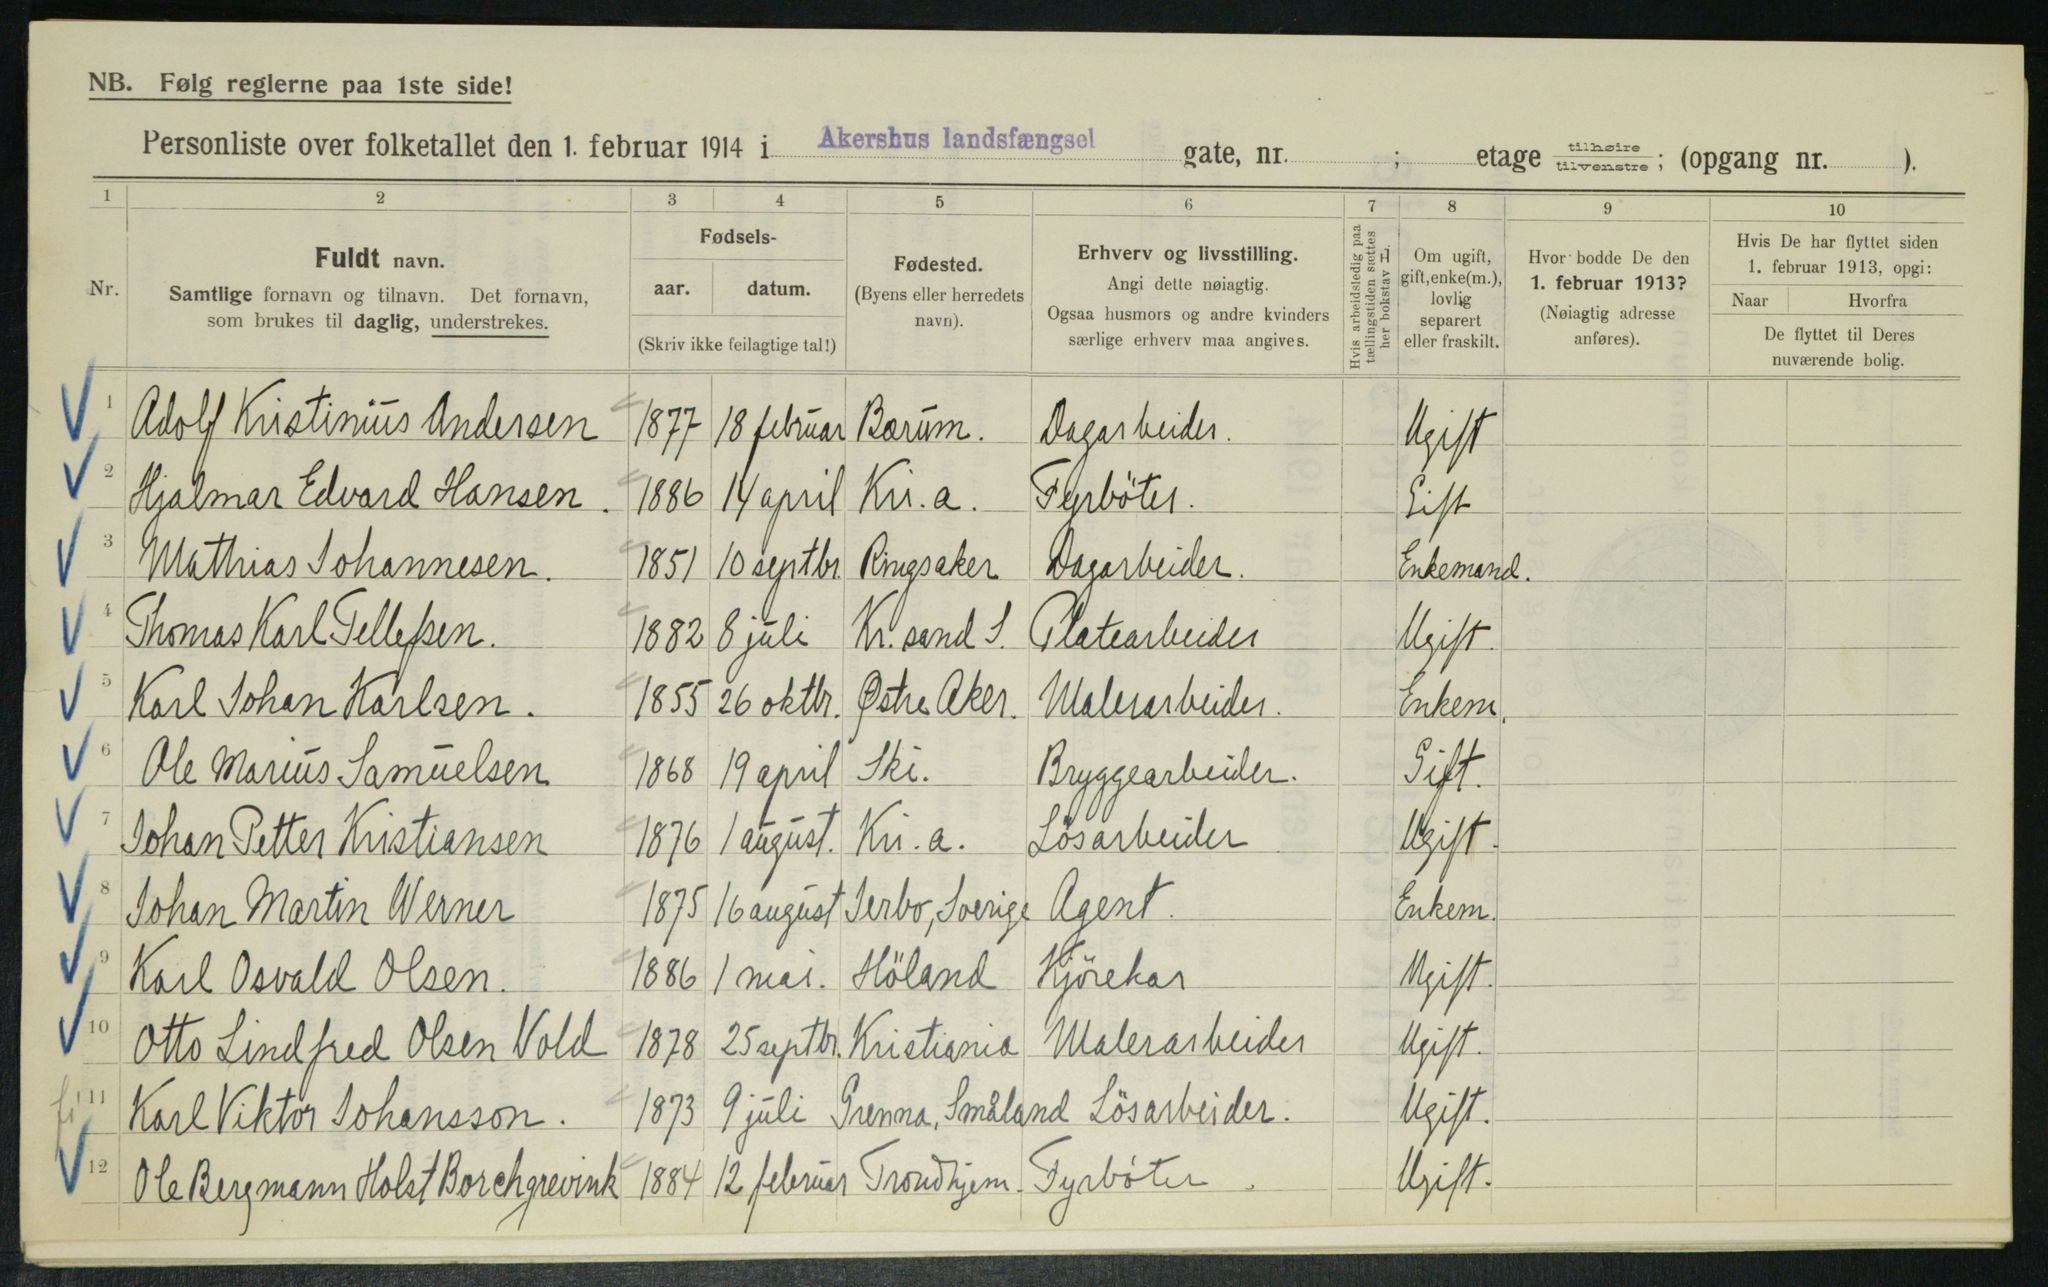 NB. Følg reglerne paa 1ste side!
Personliste over folketallet den 1. februar 1914 i Akershus landsfængsel gate, nr. ; etage tilhøire tilvenstre ; (opgang nr. ).
1 2 3 4 5 6 7 8 9 10
Nr.
Fuldt navn.
Samtlige fornavn og tilnavn. Det fornavn,
som brukes til daglig, understrekes.
Fødsels-
aar. datum.
(Skriv ikke feilagtige tal!)
Fødested.
(Byens eller herredets
navn).
Erhverv og livsstilling.
Angi dette nøiagtig.
Ogsaa husmors og andre kvinders
særlige erhverv maa angives.
Hvis arbeidsledig paa
tællingstiden sættes
her bokstav L.
Om ugift,
gift, enke(m.),
lovlig
separert
eller fraskilt.
Hvor bodde De den
1. februar 1913?
(Nøiagtig adresse
anføres).
Hvis De har flyttet siden
1. februar 1913, opgi:
Naar Hvorfra
De flyttet til Deres
nuværende bolig.
1 Adolf Kristinius Andersen 1877 18 februar Bærum. Dagarbeider. Ugift
2 Hjalmar Edvard Hansen. 1886 14 april Kr.a. Fyrböter. Gift
3 Mathias Johannesen. 1851 10 septbr. Ringsaker Dagarbeider. Enkemand.
4 Thomas Karl Tellefsen. 1882 8 juli Kr.sand S. Platearbeider Ugift.
5 Karl Johan Karlsen. 1855 26 oktbr. Østre Aker. Malerarbeider. Enkem.
6 Ole Marius Samuelsen 1868 19 april Ski. Bryggearbeider. Gift.
7 Johan Petter Kristiansen 1876 1 august. Kr.a. Lösarbeider Ugift.
8 Johan Martin Werner 1875 16 august Jerbo, Sverige Agent. Enkem.
9 Karl Osvald Olsen. 1886 1 mai. Höland Kjörekar Ugift.
10 Otto Lindfred Olsen Vold 1878 25 septbr. Kristiania Malerarbeider Ugift.
11 Karl Viktor Johansson. 1873 9 juli Grenna, Småland Lösarbeider. Ugift.
12 Ole Bergmann Holst Borchgrevink 1884 12 februar Trondhjem. Fyrböter. Ugift.